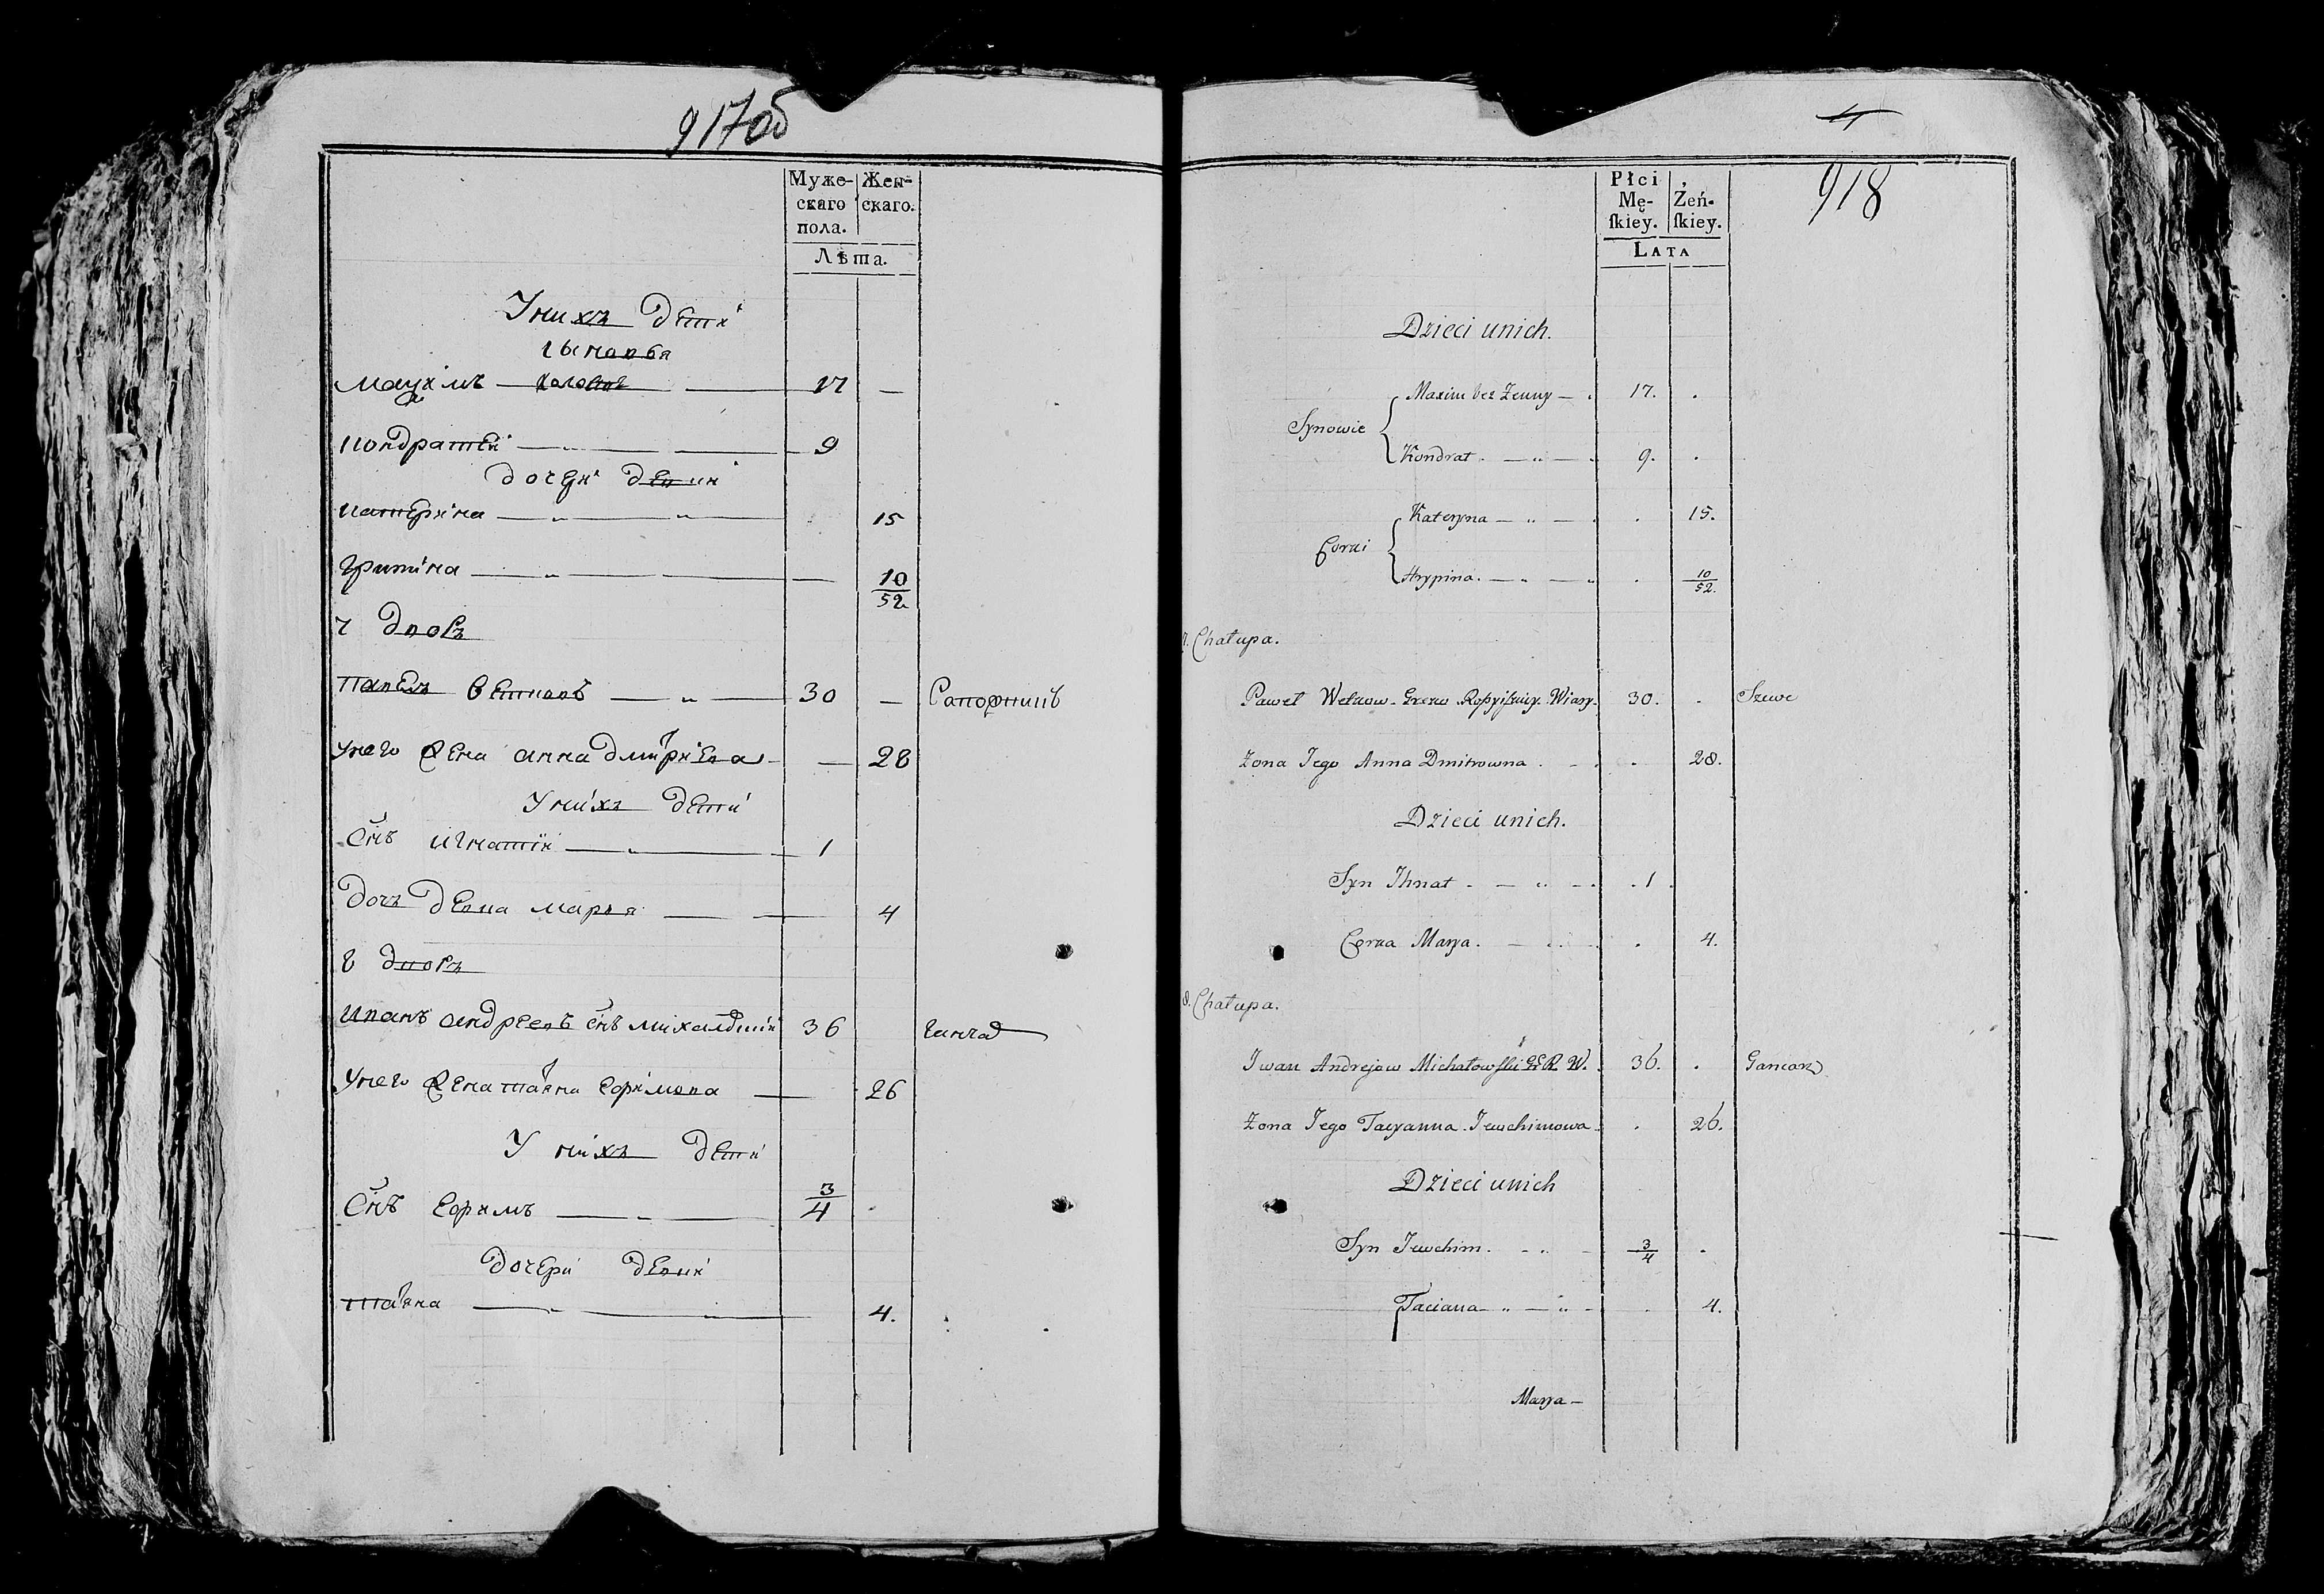 917об
Муже-
скаго
пола.
Жен-
скаго.
Лѣта.
У нихъ дети
сыновья
Маѯимъ холостъ 17 —
Кондратей 9
дочери девки
Катерина 15
Грипина — 10/52
7 дворъ
Павелъ Ветковъ 30 — Сапожникъ
У него жена Анна Дмитриева — 28
У нихъ дети
Снъ Игнатій 1
Дочь девка Марья 4
8 дворъ
Иванъ Андреевъ Снъ 36 Ганчар
У него жена Татяна Ефимова 26
У нихъ дети
Снъ Ефимъ 3/4
Дочери девки
Татяна 4.
4
918
Płci
Mę-
ſkiey.
Żeń-
ſkiey.
LATA
Dzieci unich.
Maxim bez Żenny 17.
Synowie
Kondrat. 9.
Kateryna 15.
Corki
Hrypina. 10/52.
7. Chałupa.
Paweł Wetkow. Wiary. 30. Szewc
Żona Jego Anna Dmitrowna. 28.
Dzieci unich.
Syn Ihnat 1.
Corka Marya. 4.
8. Chałupa.
Iwan Andrejow Michałowſki G. R. W. 36. Gancarz
Żona Jego Tacyanna Jewchimowa 26.
Dzieci unich
Syn Jewchim. 3/4
Taciana 4.
Marya —